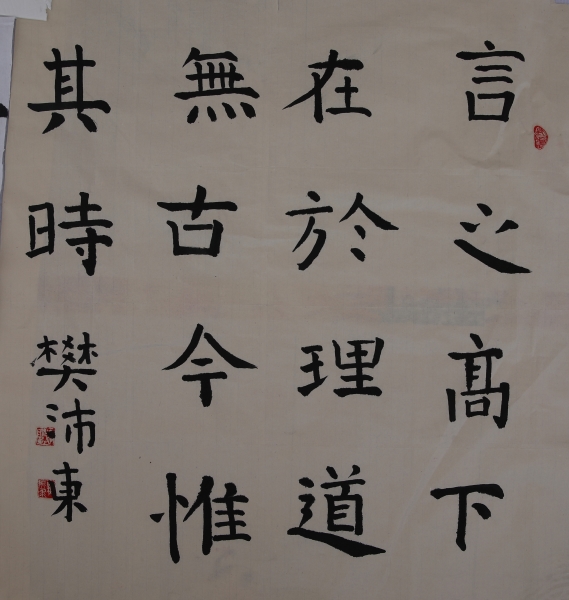 言之髙下
在於理道
無古今惟
其時樊沛東